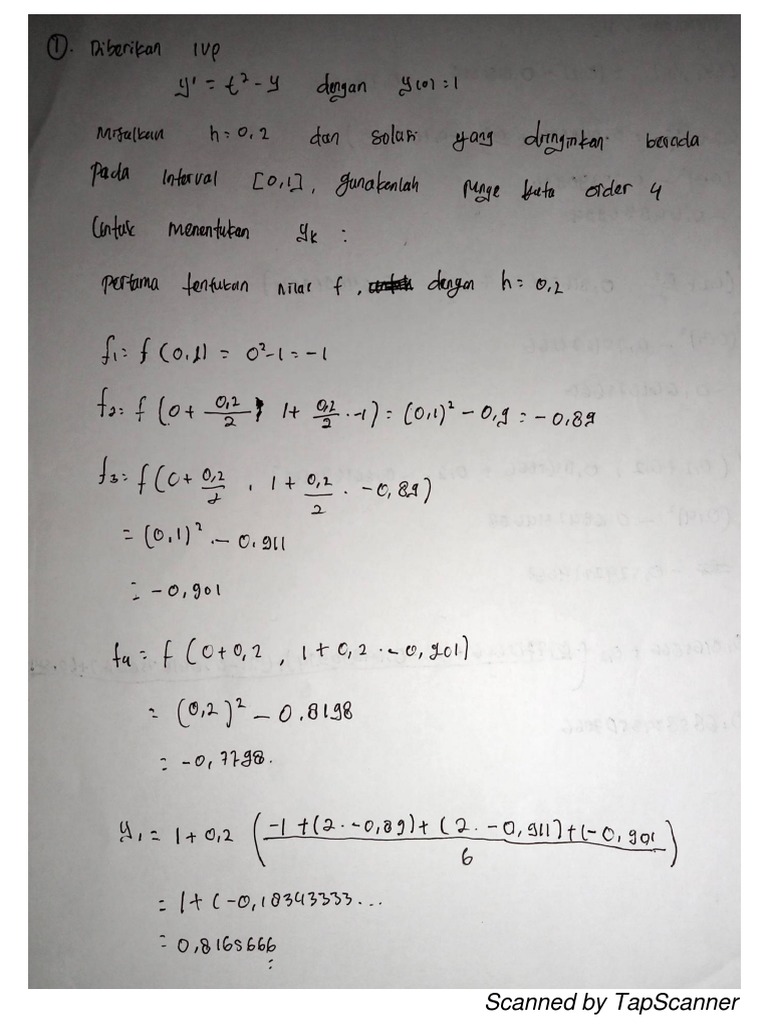 ①. Diberikan IVP
y' = t² - y dengan y(0) = 1
Misalkan h = 0,2 dan solusi yang diinginkan berada
pada interval [0,1], gunakanlah runge kuta order 4
Untuk menentukan yₖ :
pertama tentukan nilai f, dengan h = 0,2
f₁ = f (0,1) = 0² - 1 = -1
f₂ = f (0 + 0,2/2 , 1 + 0,2/2 . -1) = (0,1)² - 0,9 = -0,89
f₃ = f (0 + 0,2/2 , 1 + 0,2/2 . -0,89)
= (0,1)² - 0.911
= -0,901
f₄ = f (0 + 0,2 , 1 + 0,2 . -0,901)
= (0,2)² - 0.8198
= -0,7798.
y₁ = 1 + 0,2 ( -1 + (2 . -0,89) + (2 . -0,911) + (-0,901 / 6 )
= 1 + (-0,18343333...
= 0,8165666
:
Scanned by TapScanner